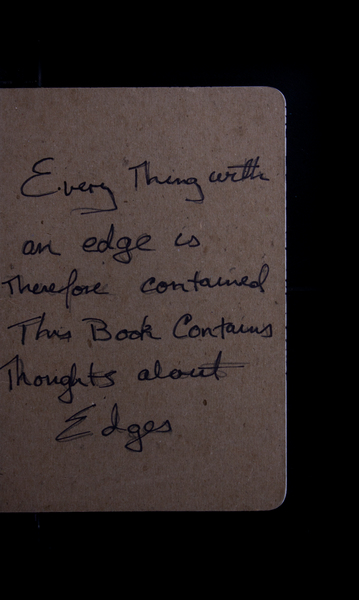 Every Thing with
an edge is
Therefore contained
This Book Contains
Thoughts about
Edges